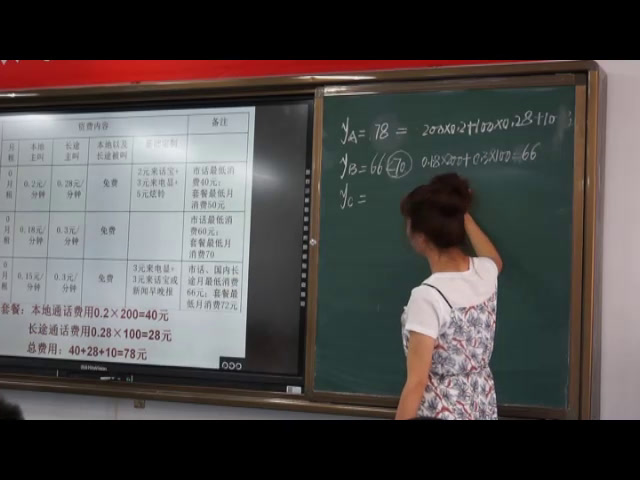 资费内容 备注
月租 本地主叫 长途主叫 本地以及长途被叫
0月租 0.2元/分钟 0.28元/分钟 免费 2元来话宝+3元来电显+5元炫铃 市话最低消费40元;套餐最低月消费50元
0月租 0.18元/分钟 0.3元/分钟 免费 市话最低消费60元;套餐最低月消费70
0月租 0.15元/分钟 0.3元/分钟 免费 3元来电显+3元来话宝或新闻早晚报 市话、国内长途月最低消费66元;套餐最低月消费72元
套餐:本地通话费用0.2×200=40元
长途通话费用0.28×100=28元
总费用:40+28+10=78元
yA = 78 = 200×0.2+100×0.28+10
yB = 66 70 0.18×200+0.3×100=66
yC =